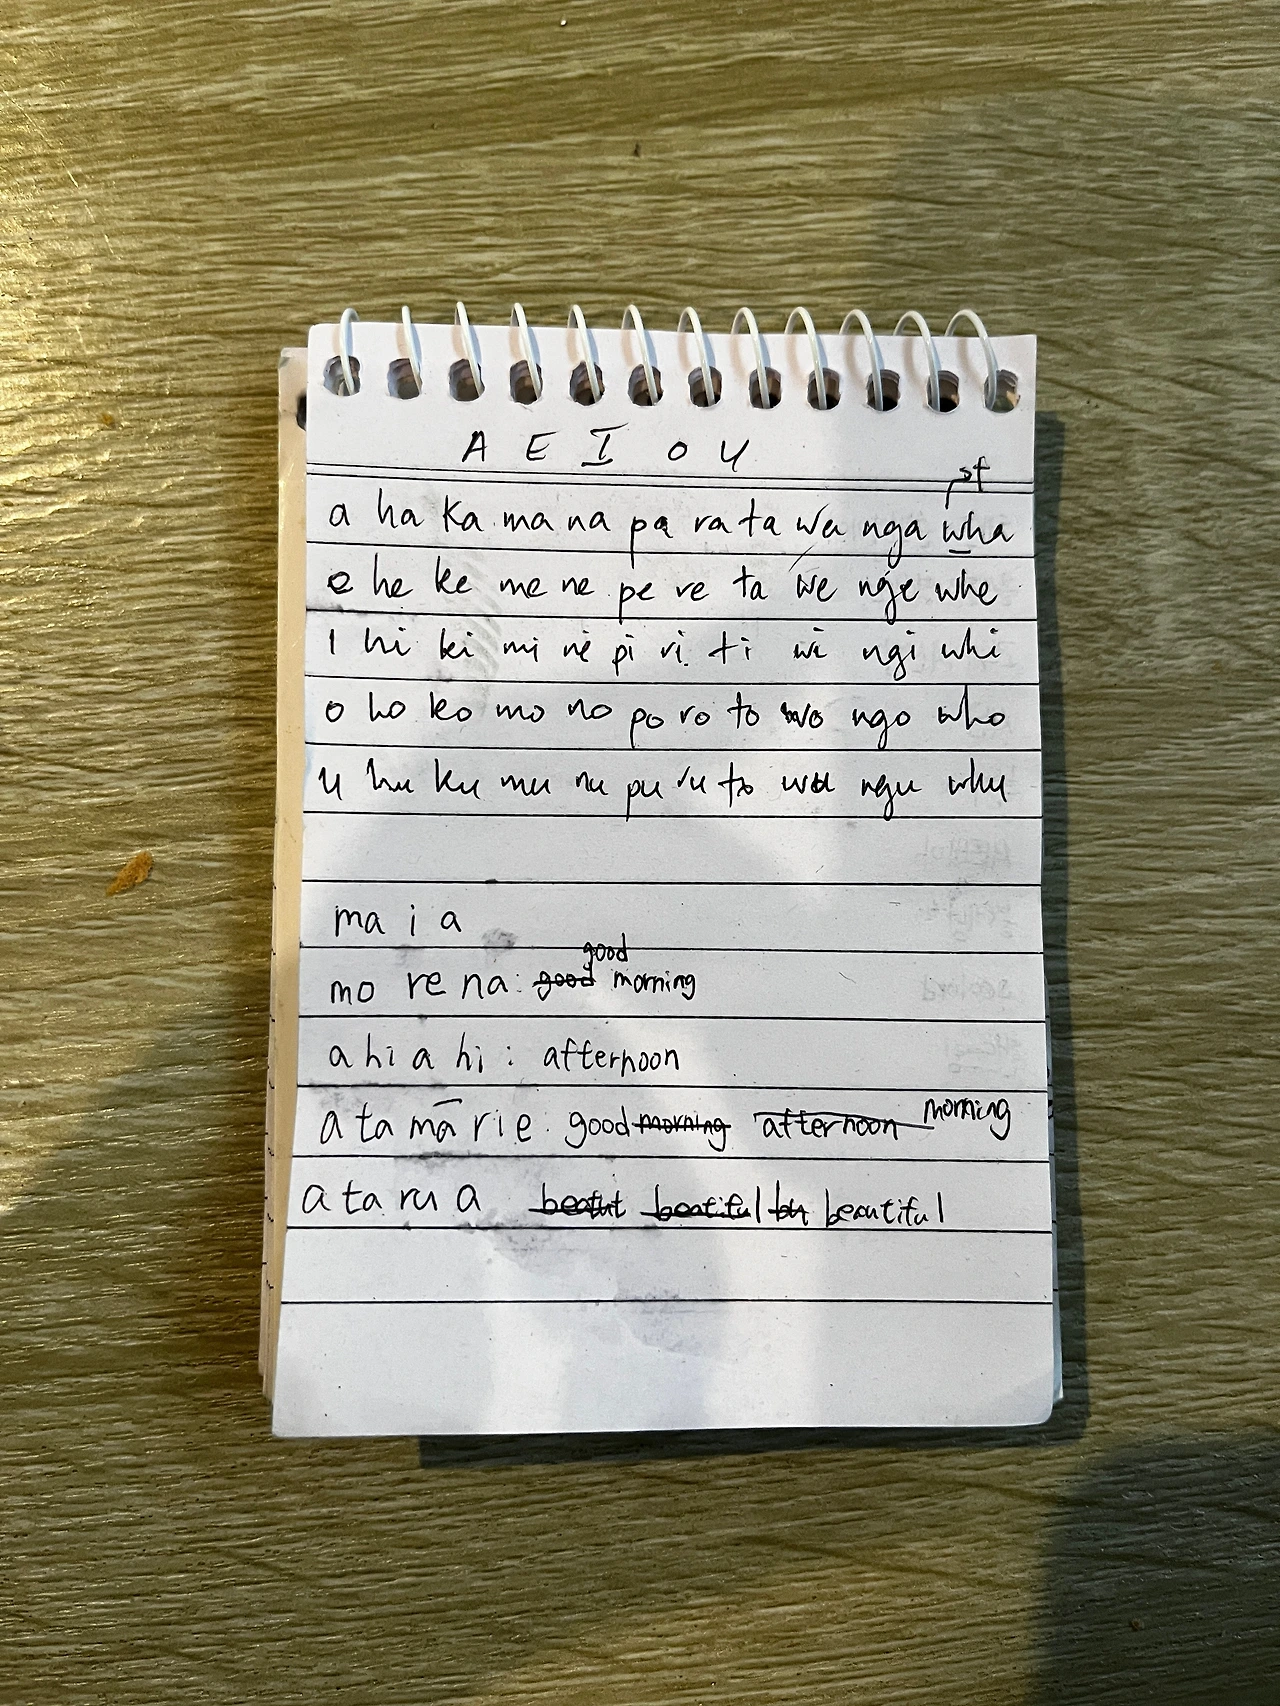 A E I O U
sf
a ha ka ma na pa ra ta wa nga wha
e he ke me ne pe re ta we nge whe
I hi ki mi ni pi ri ti wi ngi whi
o ho ko mo no po ro to wo ngo who
u hu ku mu nu pu ru to wu ngu whu
ma i a
good
mo re na: good morning
a hi a hi : afternoon
a ta mā r i e : good morning afternoon morning
a ta ru a beatut beatiful bu beautiful